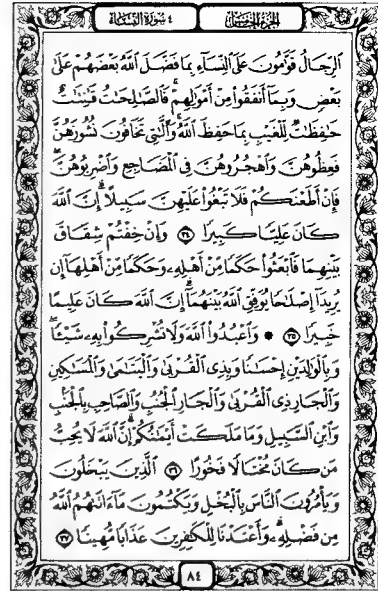 الجزء الخامس
٤ سورة النساء
الرِّجَالُ قَوَّٰمُونَ عَلَى النِّسَاءِ بِمَا فَضَّلَ اللَّهُ بَعْضَهُمْ عَلَىٰ
بَعْضٍ وَبِمَا أَنفَقُوا مِنْ أَمْوَٰلِهِمْ فَالصَّٰلِحَٰتُ قَٰنِتَٰتٌ
حَٰفِظَٰتٌ لِّلْغَيْبِ بِمَا حَفِظَ اللَّهُ وَالَّٰتِي تَخَافُونَ نُشُوزَهُنَّ
فَعِظُوهُنَّ وَاهْجُرُوهُنَّ فِي الْمَضَاجِعِ وَاضْرِبُوهُنَّ
فَإِنْ أَطَعْنَكُمْ فَلَا تَبْغُوا عَلَيْهِنَّ سَبِيلًا إِنَّ اللَّهَ
كَانَ عَلِيًّا كَبِيرًا ٣٤ وَإِنْ خِفْتُمْ شِقَاقَ
بَيْنِهِمَا فَابْعَثُوا حَكَمًا مِّنْ أَهْلِهِ وَحَكَمًا مِّنْ أَهْلِهَا إِن
يُرِيدَا إِصْلَٰحًا يُوَفِّقِ اللَّهُ بَيْنَهُمَا إِنَّ اللَّهَ كَانَ عَلِيمًا
خَبِيرًا ٣٥ وَاعْبُدُوا اللَّهَ وَلَا تُشْرِكُوا بِهِ شَيْئًا
وَبِالْوَٰلِدَيْنِ إِحْسَٰنًا وَبِذِي الْقُرْبَىٰ وَالْيَتَٰمَىٰ وَالْمَسَٰكِينِ
وَالْجَارِ ذِي الْقُرْبَىٰ وَالْجَارِ الْجُنُبِ وَالصَّاحِبِ بِالْجَنبِ
وَابْنِ السَّبِيلِ وَمَا مَلَكَتْ أَيْمَٰنُكُمْ إِنَّ اللَّهَ لَا يُحِبُّ
مَن كَانَ مُخْتَالًا فَخُورًا ٣٦ الَّذِينَ يَبْخَلُونَ
وَيَأْمُرُونَ النَّاسَ بِالْبُخْلِ وَيَكْتُمُونَ مَا ءَاتَىٰهُمُ اللَّهُ
مِن فَضْلِهِ وَأَعْتَدْنَا لِلْكَٰفِرِينَ عَذَابًا مُّهِينًا ٣٧
٨٤